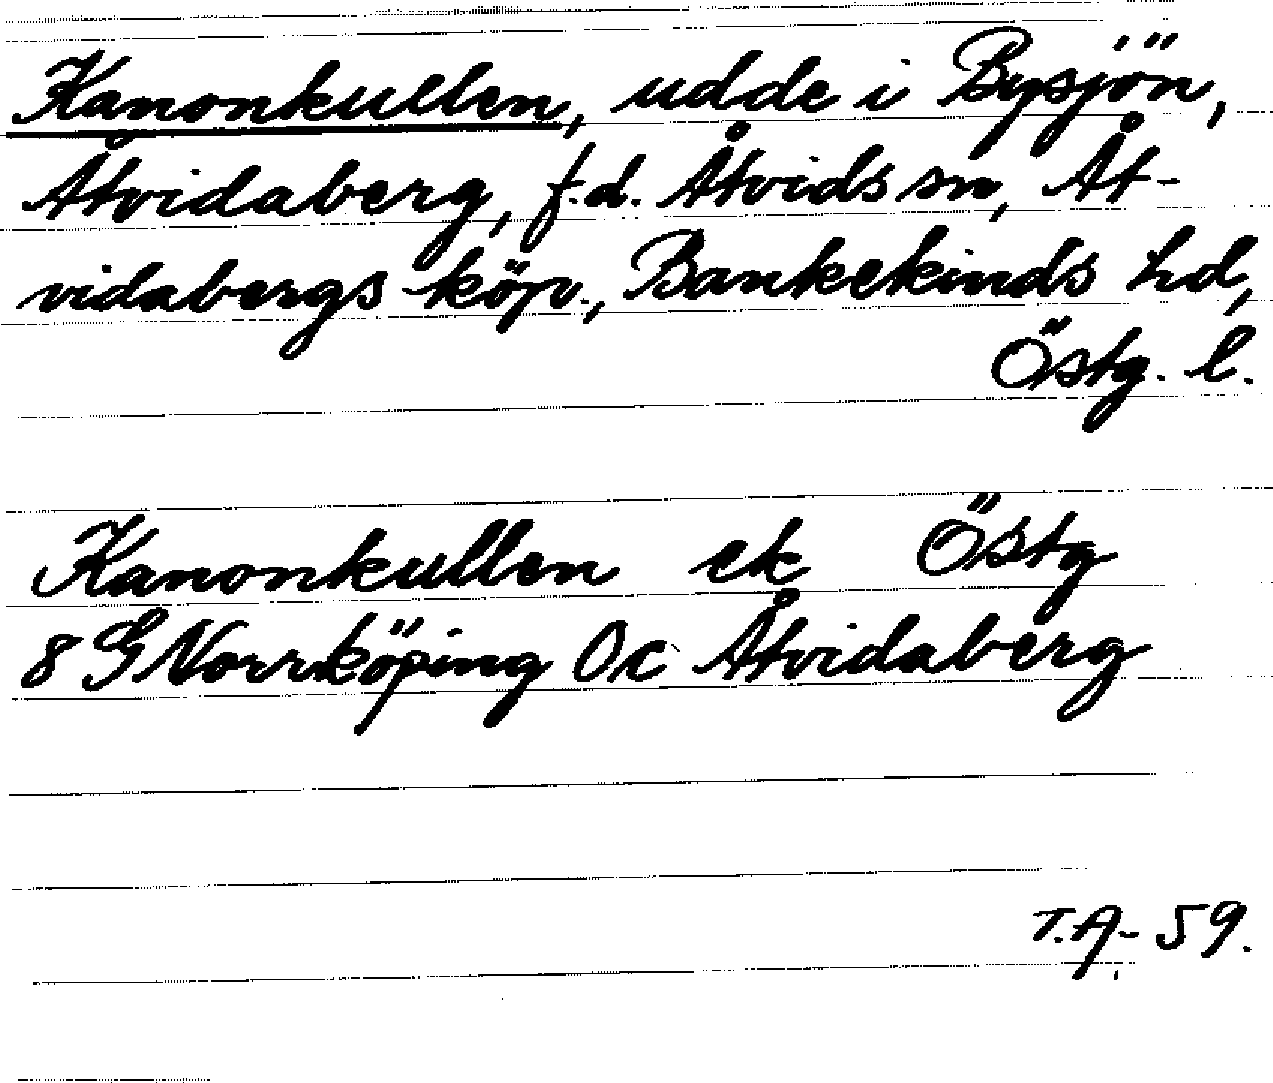 Kanonkullen, udde i Bysjön,
Åtvidaberg, f.d. Åtvids sn, Åt-
vidabergs köp., Bankekinds hd,
Östg. l.
Kanonkullen ek Östg
8 G Norrköping Oc Åtvidaberg
T.A. - 59.